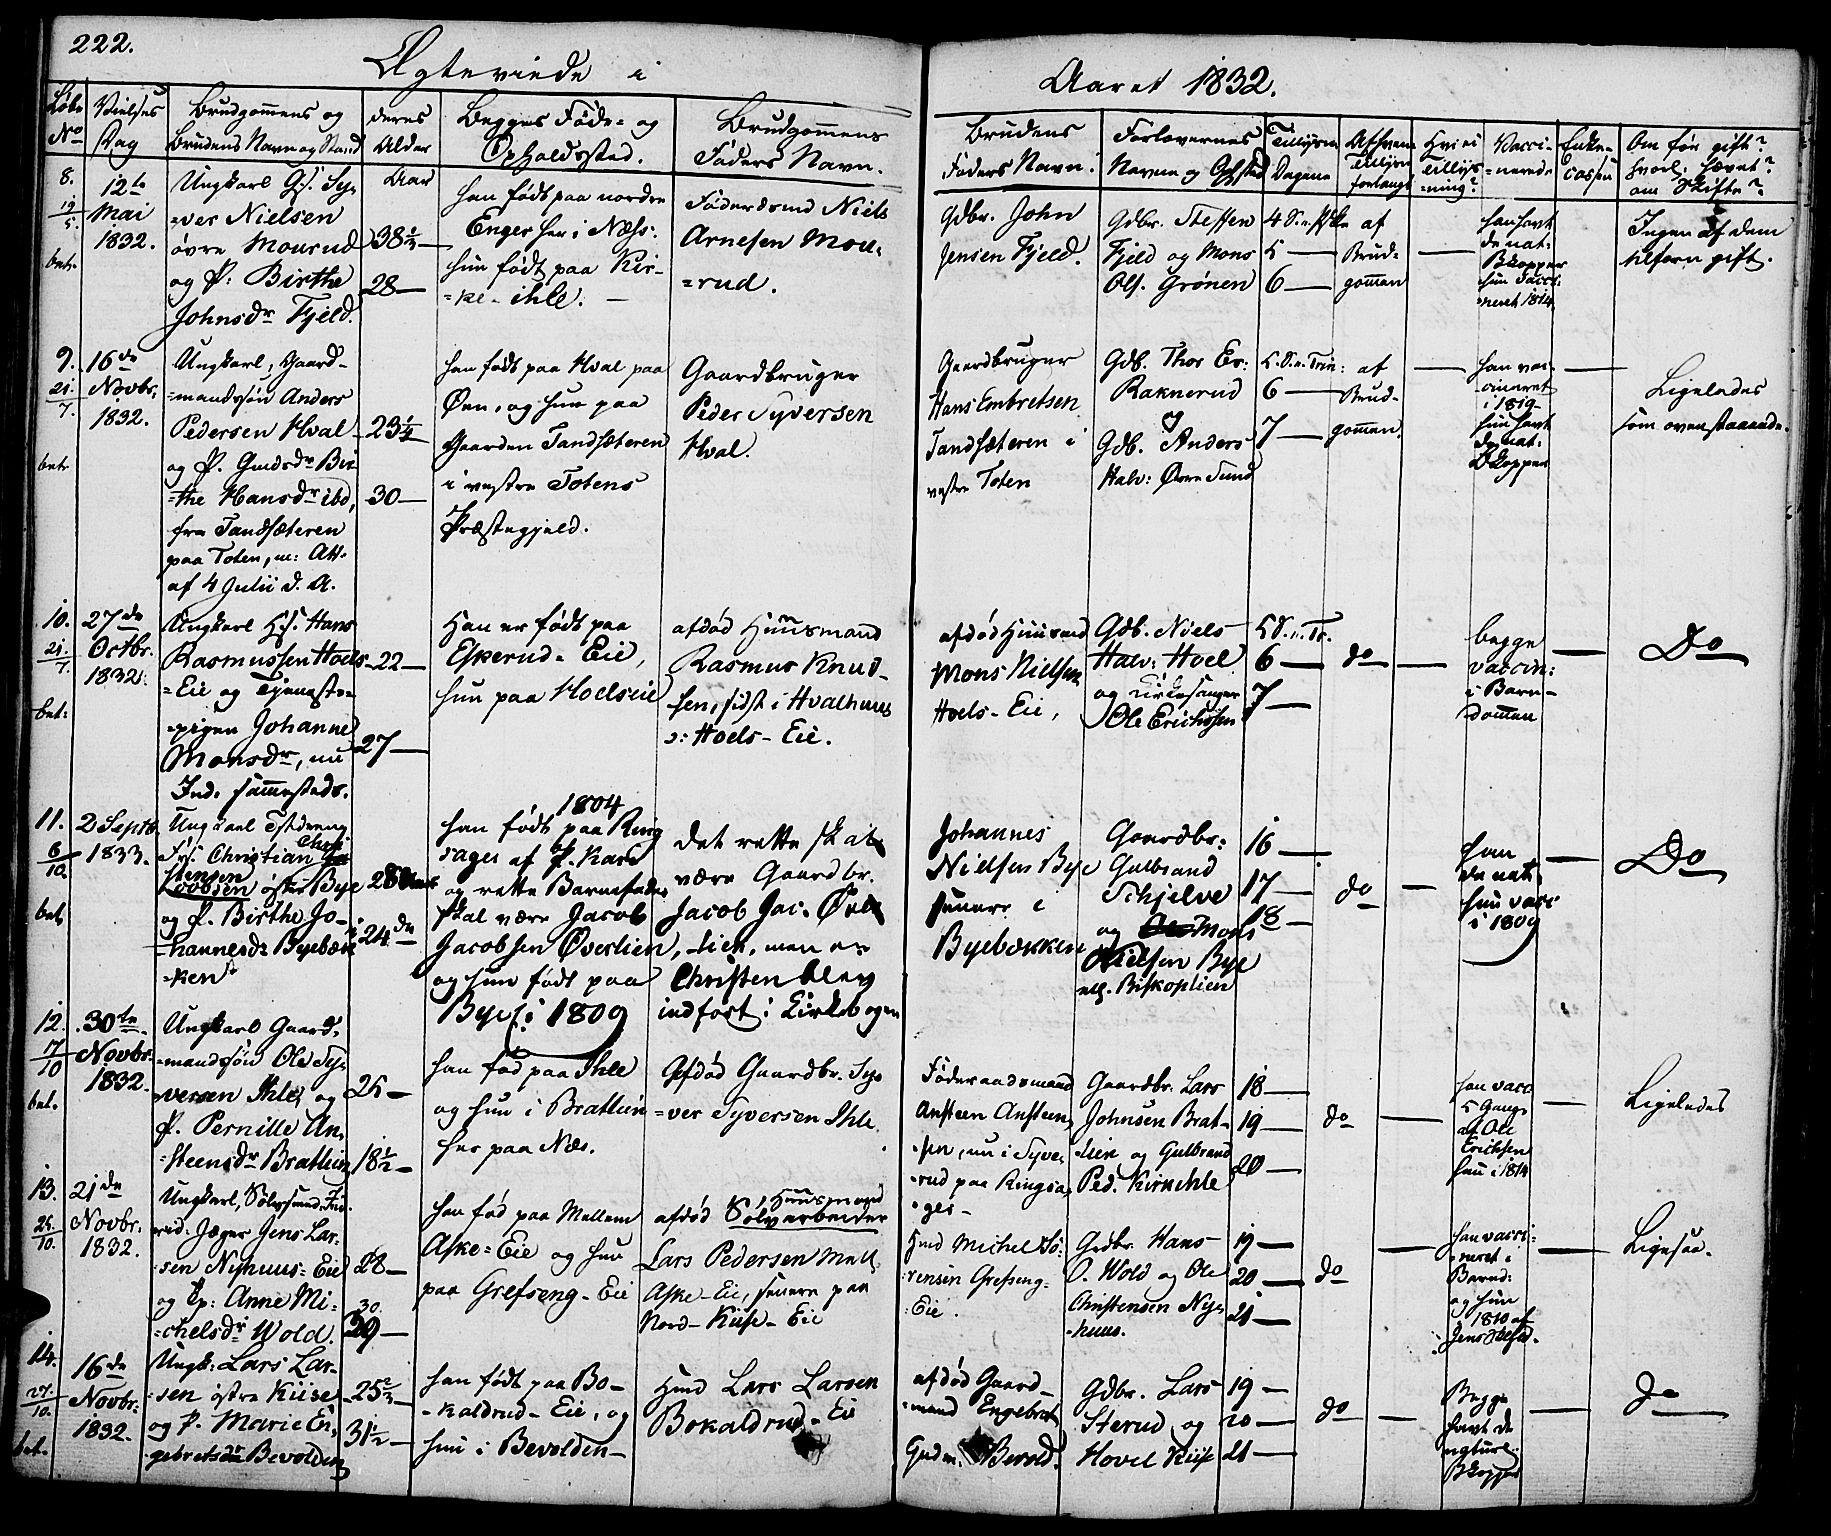 222.
Ægteviede i
Aaret 1832.
Løbe No
Vielses Dag
Brudgommens og Brudens Navn og Stand
deres Alder
Begges Føde- og Opholdssted.
Brudgommens Faders Navn.
Brudens Faders Navn.
Forlovernes Navne og Opholdsted
Tillysn. Dagene
Af hvem Tillysn. forlangt
Hvi ei Tillys=ning?
Vacci=nerede
Enke-Cassen
Om før gift? hvorl. hævet? om Skifte?
8.
19/5
bet.
12te
Mai
1832.
Ungkarl Gf. Sy=
=ver Nielsen
øvre Mourud
og P: Birthe
Johnsdr Fjeld.
Aar
38½
28
han født paa nordre
Enger her i Næss:
hun født paa Kir=
=ke-ihle. –
Føderdmd Niels
Arnesen Mou=
=rud.
Gdbr. John
Jensen Fjeld.
Gdbr. Steffen
Fjeld og Mons
Ols. Grønen
4 S. e. Pske
5
6
af
Brud=
gommen
han havt
de nat:
Bkopper
hun Vacci=
=neret 1814
Ingen af dem
tilforn gift.
9.
21/7.
bet.
16de
Novbr.
1832.
Ungkarl, Gaard-
=mandssøn Anders
Pedersen Hval
og P. Gmdsdr Bir
=the Hansdr ibd,
fra Tandsæteren
paa Toten, m: Att.
af 4 Julii d. A.
23¼
30
han født paa Hval paa
Øen, og hun paa
Gaarden Tandsæteren
i vestre Totens
Præstegjeld.
Gaardbruger
Peder Syversen
Hval.
Gaardbruger
Hans Embretsen
Tandsæteren i
vestre Toten
Gdb. Thor Er:
Raknerud
Gdb. Anders
Halv: Øvre Sund
5. S. e. Trin:
6
7
af
Brud-
gommen.
han vac=
cineret
i 1819
hun havt
de nat:
Bkopper
Ligeledes
som ovenstaaende.
10.
21/7.
bet:
27de
Octbr.
1832.
Ungkarl Hs. Hans
Rasmussen Hoels
=Eie og Tjeneste=
=pigen Johanne
Monsdr, nu
Ind. sammesteds.
22
27
Han er født paa
Eskerud-Eie,
hun paa Hoelseie
afdød Huusmand
Rasmus Knud-
sen, sidst i Hvalhuus
o: Hoels-Eie.
afdød Huusmd
Mons Nielsen
Hoels-Eie,
Gdb. Niels
Halv: Hoel
og Kirkesanger
Ole Erichssen
5 S. e. Tr.
6
7
do
begge
vaccin:
i Barn-
dommen
Do
11.
6/10.
bet
2 Septb.
1833.
Ungkarl
Christian
Jacobsen østre Bye
og P. Birthe Jo-
=hannesdr Byebæk
=ken
28
24de
1804
han født paa Ring
sager af P. Kari
og rette Barnefader
skal være Jacob
Jacobsen Øverlien,
og hun født paa
Bye i 1809
det rette skal
være Gaardbr.
Jacob Jac. Øver
=lien, men er
Christen blev
indført i Kirkebogen
Johannes
Nielsen Bye
senere i
Byebækken
Gaardbr:
Gulbrand
Schjelve
og Mons
Nielsen Bye
Biskoplien
16
17
18
do
han
de nat
hun vacc
i 1809
Do
12.
7/10
bet.
30te
Novbr.
1832.
Ungkarl Gaard=
=mandssøn Ole Sy=
versen Ihle, og
P. Pernille An=
=steensdr Bratlien
25
18½
han fød paa Ihle
og hun i Bratlien
her paa Næs.
Afdød Gaardbr. Sy=
=ver Syversen Ihle.
Føderaadsmand
Ansteen Ansteen,
=sen, nu i Syve=
=rud paa Ringsa,
=ger-
Gaardbr. Lars
Johnsen Brat-
=lien og Gulbrand
Ped. Kirkeihle
18
19
20
do
han vacc
5 Gange
af Ole
Erichsen
hun i 1814
Ligeledes
13.
25/10.
21de
Novbr.
1832.
Ungkarl, Sølvsmed,
Jæger Jens Lar=
=sen Nyhuus=Eie
og Ep: Anne Mi=
=chelsdr Wold.
28
30.
29
han fød paa Mellem
Aske=Eie og hun
paa Grefseng-Eie
afdød Huusmand
Sølvarbeider
Lars Pedersen Mell,
Aske-Eie, senere paa
Nord-Kiise-Eie
Hmd Michel Sø=
=rensen Grefseng=
=Eie.
Grdbr. Hans
O. Wold og Ole
Christensen Ny=
=huus.
19
20
21
do
han vacci=
neret i
Barnd:
og hun
1810 af
Ligesaa.
14.
27/10.
bet.
16de
Novbr:
1832.
Ungk: Lars Lar=
=sen østre Kiise
og P. Marie En,
gebretsdr Bevolden
25⅔
31½
han født paa Bo-
-kaldrud-Eie, og
hun i Bevolden-
Hmd Lars Larsen
Bokaldrud-Eie
afdød Gaard-
=mand Engebret
Gudm. Bevold.
Gdbr. Lars
Sterud og
Hovel Kiise
19
20
21
do
Begge
havt de
naturl.
Bkopper
do